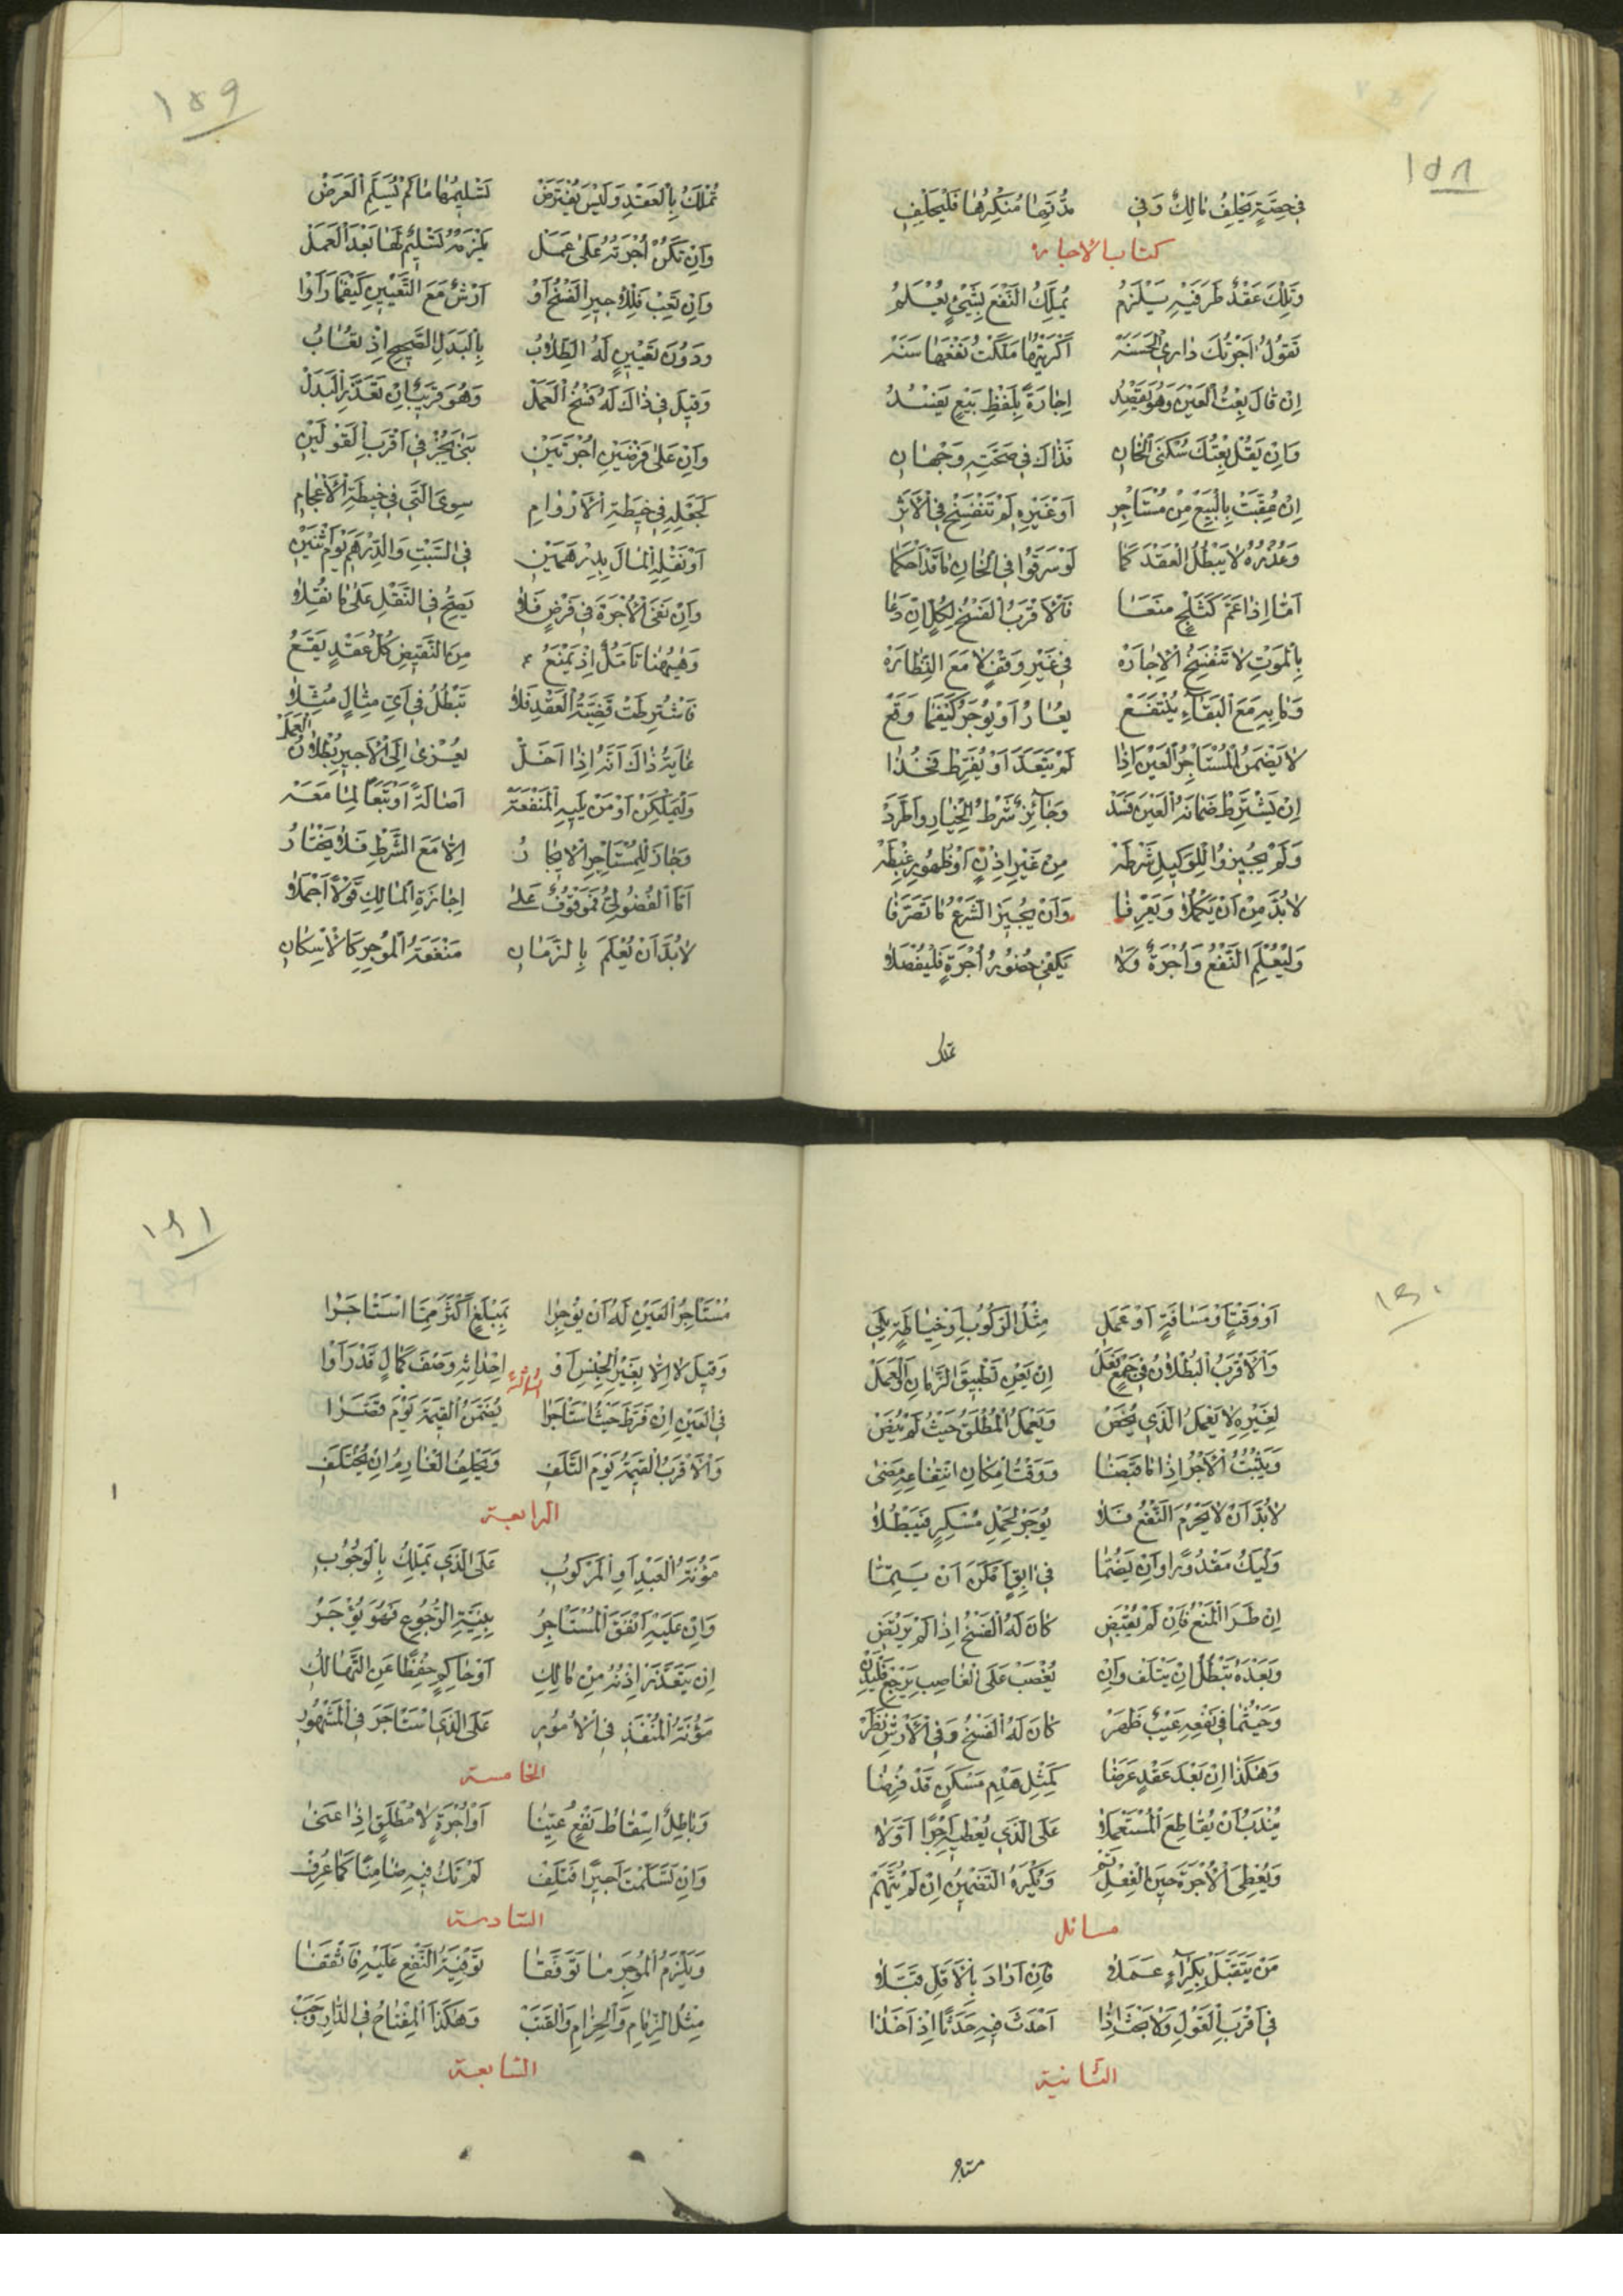 ١٥٨
في حصة يحلف مالك وفي مدتها منكرها فليحلف
كتاب الاجارة
وَتِلْكَ عَقْدٌ طَرَفَيْهِ يَلْزَمُ يُمَلِّكُ النَّفْعَ بِشَيْءٍ يُعْلَمُ
تَقُولُ اَجَرْتُكَ دَارِي الحَسَنَهْ اَكْرَيْتُهَا مَلَّكْتُ نَفْعَهَا سَنَهْ
اِنْ قَالَ بِعْتُ الْعَيْنَ وَهُوَ يَقْصِدُ اِجَارَةً بِلَفْظِ بَيْعٍ يَفْسُدُ
وَاِنْ يَقُلْ بِعْتُكَ سُكْنَى الْخَانِ فَذَاكَ فِي صِحَّتِهِ وَجْهَانِ
اِنْ عُقِّبَتْ بِالْبَيْعِ مِنْ مُسْتَأجِرِ اَوْ غَيْرِهِ لَمْ تَنْفَسِخْ فِي الْاَثَرِ
وَعُذْرُهُ لَا يُبْطِلُ الْعَقْدَ كَمَا لَوْ سَرَقُوا فِي الْخَانِ مَا قَدْ اَحْكَمَا
اَمَّا اِذَا عَمَّ كَثَلْجٍ مَنَعَا فَالْاَقْرَبُ الْفَسْخُ لِكُلٍّ اِنْ دَعَا
بِالْمَوْتِ لَا تَنْفَسِخُ الْاِجَارَهْ فِي غَيْرِ وَقْفٍ لَا مَعَ النَّظَارَهْ
وَمَا بِهِ مَعَ الْبَقَاءِ يُنْتَفَعْ يُعَارُ اَوْ يُوجَرُ كَيْفَمَا وَقَعْ
لَا يَضْمَنُ الْمُسْتَاجِرُ الْعَيْنَ اِذَا لَمْ يَتَعَدَّ اَوْ يُفَرِّطْ فَخُذَا
اِنْ يَشْتَرِطْ ضَمَانَهُ الْعَيْنَ فَسَدْ وَجَائِزٌ شَرْطُ الْخِيَارِ وَاطَّرَدْ
وَلَمْ يُجِيزُوا لِلْوَكِيلِ شَرْطَهْ مِنْ غَيْرِ اِذْنٍ اَوْ ظُهُورِ غِبْطَهْ
لَا بُدَّ مِنْ اَنْ يَكْمُلَا وَيَعْرِفَا وَاَنْ يُجِيزَ الشَّرْعُ مَا تَصَرَّفَا
وَلْيُعْلَمِ النَّفْعُ وَاُجْرَةٌ وَلَا يَكْفِي حُضُورُ اُجْرَةٍ فَلْيُفْصَلَا
تملك
١٥٩
تُمْلَكُ بِالْعَقْدِ وَلَيْسَ يُفْتَرَضْ تَسْلِيمُهَا مَا لَمْ يُسَلَّمِ الْعَرَضْ
وَاِنْ تَكُنْ اُجْرَتُهُ عَلَى عَمَلْ يَلْزَمُهُ تَسْلِيمٌ لَهَا بَعْدَ الْعَمَلْ
وَاِنْ تَعِبْ فَلِلْاَجِيرِ الْفَسْخُ اَوْ اَرْشٌ مَعَ التَّعْيِينِ كَيْفَمَا رَاَوْا
وَدُونَ تَعْيِينٍ لَهُ الطِّلَابُ بِالْبَدَلِ الصَّحِيحِ اِذْ تُعَابُ
وَقِيلَ فِي ذَاكَ لَهُ فَسْخُ الْعَمَلْ وَهُوَ قَرِيبٌ اِنْ تَعَذَّرَ الْبَدَلْ
وَاِنْ عَلَى فَرْضَيْنِ اُجْرَتَيْنِ يجز فِي اَقْرَبِ الْقَوْلَيْنِ
كَجَعْلِهِ فِي خِيطَةِ الْاَرْوَامِ سِوَى الَّتِي فِي خِيطَةِ الْاَعْجَامِ
اَوْ نَقْلِهِ الْمَالَ بِدِرْهَمَيْنِ فِي السَّبْتِ وَالدِّرْهَمِ يَوْمَ اثْنَيْنِ
وَاِنْ نَفَى الْاُجْرَةَ فِي فَرْضٍ فَلَا يَصِحُّ فِي النَّقْلِ عَلَى مَا نُقِلَا
وَهَيْهُنَا تَأَمُّلٌ اِذْ يَمْنَعُ مِنَ النَّقِيضِ كُلُّ عَقْدٍ يَقَعُ
فَاشْتُرِطَتْ قَضِيَّةُ الْعَقْدِ فَلَا تَبْطُلُ فِي اَيِّ مِثَالٍ مُثِّلَا
غَايَةُ ذَاكَ اَنَّهُ اِذَا اَخَلْ يُعْزَى اِلَى الْاَجِيرِ بُطْلَانُ الْعَمَلْ
وَلْيَمْلِكَنْ اَوْ مَنْ يَلِيهِ الْمَنْفَعَهْ اَصَالَةً اَوْ تَبَعًا لِمَا مَعَهْ
وَجَازَ لِلْمُسْتَاجِرِ الْايجَارُ اِلَّا مَعَ الشَّرْطِ فَلَا يُخْتَارُ
اَمَّا الْفُضُولِيُّ فَمَوْقُوفٌ عَلَى اِجَازَةِ الْمَالِكِ قَوْلًا اَجْمَلَا
لَا بُدَّ اَنْ يُعْلَمَ بِالزَّمَانِ مَنْفَعَةُ الْمُوجَرِ كَالْاِسْكَانِ
١٦٠
اَوْ وَقْتٍ اَوْ مَسَافَةٍ اَوْ عَمَلِ مِثْلُ الرُّكُوبِ اَوْ خِيَاطَةٍ يَلِي
وَالْاَقْرَبُ الْبُطْلَانُ فِي جَمْعٍ نَعَلْ اِنْ يَعْنِ تَطْبِيقَ الزَّمَانِ الْعَمَلْ
لِغَيْرِهِ لَا يَعْمَلُ الَّذِي يُخَصْ وَيَعْمَلُ الْمُطْلَقُ حَيْثُ لَمْ
وَيَثْبُتُ الْاَجْرُ اِذَا مَا قَبَضَا وَوَقْتُ اِمْكَانِ انْتِفَاعِهِ مَضَى
لَا بُدَّ اَنْ لَا يَحْرُمَ النَّفْعُ فَلَا يُوجَرُ لِحَمْلِ مُسْكِرٍ فَيَبْطُلَا
وَلْيَكُ مَقْدُورًا وَاِنْ يَضُمَّا فِي ابِقٍ اَمْكَنَ اَنْ يَتِمَّا
اِنْ طَرَاَ الْمَنْعُ فَاِنْ لَمْ يُقْبَضِ كَانَ لَهُ الْفَسْخُ اِذَا لَمْ يَرْتَضِ
وَبَعْدَهُ تَبْطُلُ اِنْ يَتْلَفْ وَاِنْ يُغْصَبْ عَلَى الْغَاصِبِ يَرْجِعْ
وَحَيْثُمَا فِي نَفْعِهِ عَيْبٌ ظَهَرْ كَانَ لَهُ الْفَسْخُ وَفِي الْاَرْشِ نَظَرْ
وَهٰكَذَا اِنْ بَعْدَ عَقْدٍ عَرَضَا كَمِثْلِ هَدْمِ مَسْكَنٍ قَدْ فُرِضَا
يُنْدَبُ اَنْ يُقَاطِعَ الْمُسْتَعْمَلَا عَلَى الَّذِي يُعْطِيهِ اَجْرًا اَوَّلَا
وَيُعْطِيَ الْاُجْرَةَ حِينَ الْفِعْلِ تَمْ وَيُكْرَهُ التَّضْمِينُ اِنْ لَمْ يُتَّهَمْ
مسائل
مَنْ يَتَقَبَّلْ بِكِرَاءٍ عَمَلَا فَاِنْ اَرَادَ بِالْاَقَلِّ قَبَّلَا
فِي اَقْرَبِ الْقَوْلِ وَلَا اِذَا اَحْدَثَ فِيهِ حَدَثًا اِذْ اَخَذَا
الثانية
مستاجر
١٦١
مُسْتَاجِرُ الْعَيْنِ لَهُ اَنْ يُوجِرَا بِمَبْلَغٍ اَكْثَرَ مِمَّا اسْتَاجَرَا
وَقِيلَ لَا اِلَّا بِغَيْرِ الْجِنْسِ اَوْ اِحْدَاثِهِ وَصْفَ كَمَالٍ قَدْ رَاَوْا
الثالثة
فِي الْعَيْنِ اِنْ فَرَّطَ حَيْثُ اسْتَاجَرَا يُضَمَّنُ الْقِيمَةَ يَوْمَ قَصَّرَا
وَالْاَقْرَبُ الْقِيمَةُ يَوْمَ التَّلَفِ وَيَحْلِفُ الْغَارِمُ اِنْ يُخْتَلَفِ
الرابعة
مَؤُنَةُ الْعَبْدِ اَوِ الْمَرْكُوبِ عَلَى الَّذِي يَمْلِكُ بِالْوُجُوبِ
وَاِنْ عَلَيْهِ اَنْفَقَ الْمُسْتَاجِرُ بِنِيَّةِ الرُّجُوعِ فَهُوَ يُوْجَرُ
اِنْ يَتَعَذَّرْ اِذْنُهُ مِنْ مَالِكِ اَوْ حَاكِمٍ حِفْظًا عَنِ الْمَهَالِكِ
مَؤُنَةُ الْمُنْفَذِ فِي الْاُمُورِ عَلَى الَّذِي اسْتَاجَرَ فِي الْمَشْهُورِ
الخامسة
وَبَاطِلٌ اِسْقَاطُ نَفْعٍ عُيِّنَا اَوْ اُجْرَةٍ لَا مُطْلَقٍ اِذَا عَنَى
وَاِنْ تَسَلَّمْتَ اَجِيرًا فَتَلِفْ لَمْ تَكُ فِيهِ ضَامِنًا كَمَا عُرِفْ
السادسة
وَيَلْزَمُ الْمُوجِرَ مَا تَوَقَّفَا تَوْفِيَةُ النَّفْعِ عَلَيْهِ
مِثْلُ الزِّمَامِ وَالْحِزَامِ وَالْقَتَبْ وَهٰكَذَا الْمِفْتَاحُ فِي الدَّارِ وَجَبْ
السابعة